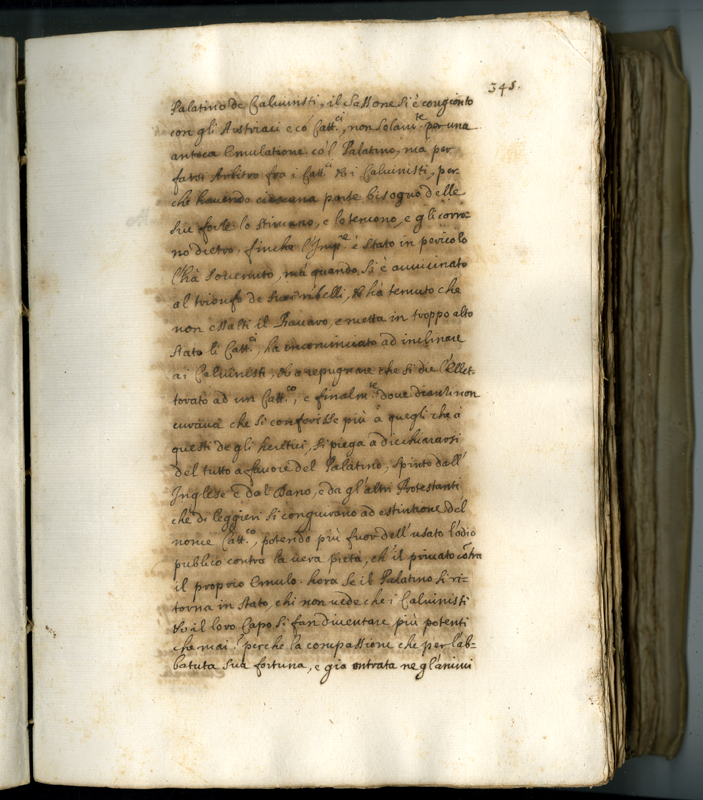 345.
Palatino de Calvinisti, il Sassone si è congionto
con gli Austriaci e co' Catt.ci, non solam.te per una
antica Emulatione co'l Palatino, ma per
farsi Arbitro fra i Catt.ci & i Calvinisti, per-
che havendo ciascuna parte bisogno delle
sue forze lo stimano, e lo temono, e gli corro-
no dietro, finche l'Imp.re è stato in pericolo
l'hà sovenuto, mà quando si è avvicinato
al trionfo de suoi ribelli, & hà temuto che
non essalti il Bavaro, e metta in troppo alto
stato li Catt.ci, ha incominciato ad inclinare
a i Calvinisti, & a repugnare che si dia l'Elet-
torato ad un Catt.co, e finalm.te dove dianzi non
curava che si conferisse più à quegli che à
questi de gli heretici, si piega à dichiararsi
del tutto a favore del Palatino, spinto dall'
Inglese e dal Dano, e da gl'altri Protestanti
che di leggieri si congiurano ad estintione del
nome Catt.co, potendo più fuor dell'usato l'odio
publico contra la vera pietà, ch'il privato cōtra
il proprio Emulo. hora se il Palatino si ri-
torna in stato, chi non vede che i Calvinisti
& il loro Capo si fan diventare più potenti
che mai? perche la compassione che per l'ab-
batuta sua fortuna, e gia entrata ne gl'animi